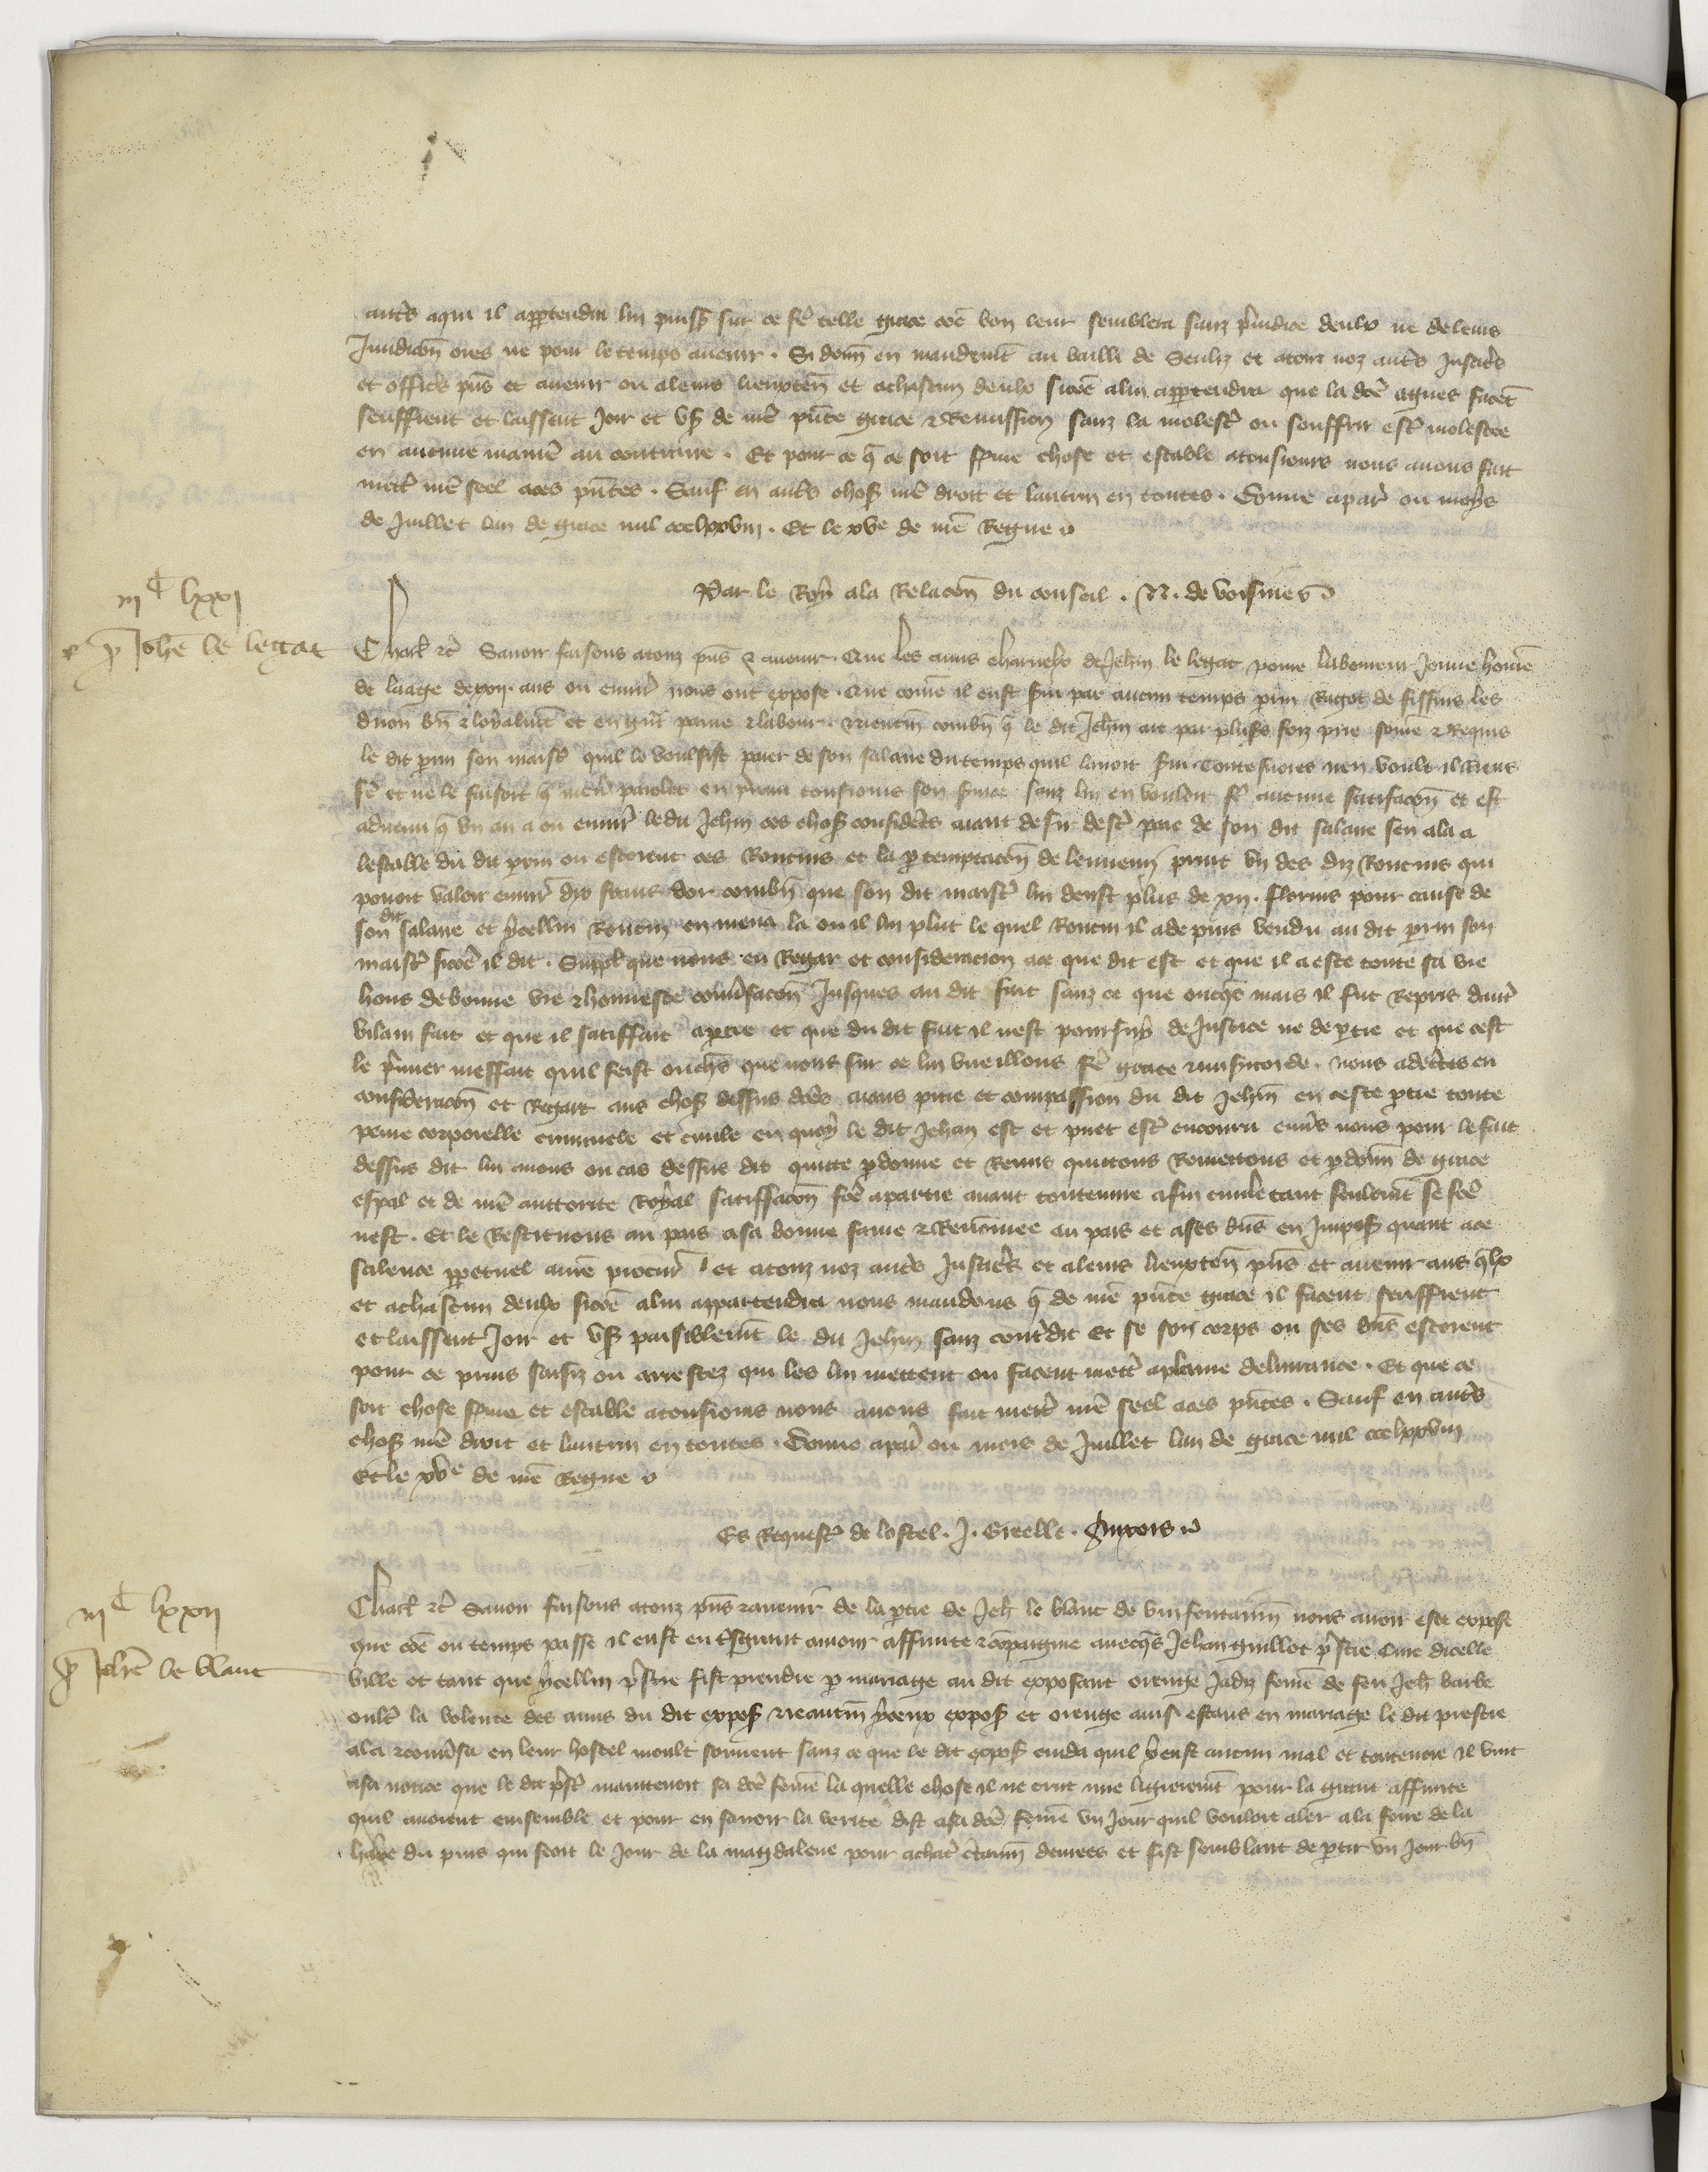 autrs a qui il appartendra lui puiss sur ce fe telle grace coe bon leur semblera sanz preiudice deulx ne de leurs
Juridicon ores ne pour le temps avenir . Si donn en mandemt au bailli de Senliz et a touz noz autrs Justiciers
et officrs pns et avenir ou a leurs lieuxten et a chascun deulx sicoe a lui appartendra que la dce agnes facent
seuffrent et laissent Joir et vser de nre pnte grace et Remission sanz la molestr ou souffrir estr molestee
en aucune maniere au contraire . Et pour ce q ce soit ferme chose et estable a tousiours nous avons fait
mettr nre seel a ces pntes . Sauf en autrs chos nre droit et lautrui en toutes . Donne a paris ou moys
de Juillet lan de grace mil ccclxxviii . Et le xve de nre Regne
Par le Roy a la Relacon du conseil . N . de voisines
iii C lxxi
p Johe le legat
Charl etc Savoir faisons a touz pns et avenir . Que les amis charnelx de Jehan le legat povre laboureur Jeune home
de laage de xxii . ans ou environ nous ont expose . Que come il eust servi par aucun temps perin Rigot de fissins les
dijon bn et loyalmt et en grant paine et labour . Neentmoins combn q le dit Jehan ait par plusrs foiz prie some et Requis
le dit perin son maistre quil le voulsist paier de son salaire du temps quil lavoit servi toutesuoies nen voult il riens
fe et ne le faisoit q mener de paroles en prenant tousiours son service sanz lui en vouloir fe aucune satisfacon et est
advenu q un an a ou environ le dit Jehan ces choses considerees aiant desir destr paie de son dit salaire sen ala a
lestable du dit perin ou estoient ces Roncins et la p temptacon de lennemi print un des diz Roncins qui
povoit valoir environ dix frans dor combn que son dit maistr lui deust plus de xii . florins pour cause de
son dit salaire et ycellui Roncin en mena la ou il lui plut le quel Roncin il a depuis vendu au dit perin son
maistr sicoe il dit . Suppl que nous en Regar et consideracion a ce que dit est et que il a este toute sa vie
hons de bonne vie et honneste conversacon Jusques au dit fait sanz ce que oncqs mais il fut Repris dautr
vilain fait et que il satiffait a ptie et que du dit fait il nest poursuy de Justice ne de ptie et que cest
le premier meffait quil feist oncqs que nous sur ce lui vueillons fe grace et misericorde . Nous adcertes en
consideracon et Regart aus chos dessus dces aians pitie et compassion du dit Jehan en ceste ptie toute
peine corporelle criminele et civile en quoy le dit Jehan est et puet estr encouru envers nous pour le fait
dessus dit lui avons ou cas dessus dit quitte pdonne et Remis quittons Remettons et pdonn de grace
espal et de nre auttorite Royal satiffacon fce a partie avant toutevuie a fin civile tant seulemt se fce
nest . Et le Restituons au pais a sa bonne fame et Renommee au pais et a ses bns en Imposant quant a ce
silence ppetuel a nre procureur et a touz noz autrs Justiciers et a leurs lieuxten pns et avenir aus qlx
et a chascun deulx sicoe a lui appartendra nous mandons q de nre pnte grace il facent seuffrent
et laissent Joir et vser paisiblemt le dit Jehan sanz contredit Et se son corps ou ses bns estoient
pour ce prins saisiz ou arrestez qui les lui mettent ou facent mettr a plaine delivrance . Et que ce
soit chose ferme et estable a tousiours nous avons fait mettr nre seel a ces pntes . Sauf en autrs
choses nre droit et lautrui en toutes . Donne a paris ou mois de Juillet lan de grace mil ccclxxviii
Et le xve de nre Regne
Es Requestes de lostel . J . Greelle .
iii C lxxii
p Johe le blanc
Charl etc Savoir faisons a touz pns et avenir de la ptie de Jeh le blanc de nous avoir este expose
que coe ou temps passe il eust en tresgrant amour affinite et compaignie avecqs Jehan guillot prestre cure dicelle
ville et tant que ycellui prestre fist prendre p mariage au dit exposant orenge Jadiz feme de feu Jeh barbe
oultr la volente des amis du dit expos neantmoins yceux expos et orenge ainsi estans en mariage le dit prestre
ala et conversa en leur hostel moult souvent sanz ce que le dit expos cuida quil y eust aucun mal et toutevoie il vint
a sa notice que le dit prestre maintenoit sa dce feme la quelle chose il ne crut mie legierement pour la grant affinite
quil avoient ensemble et pour en savoir la verite dist a sa dce feme un Jour quil vouloit aler a la foire de la
du pais qui seoit le Jour de la magdalene pour achatr certain denrees et fist semblant de ptir un Jour bn